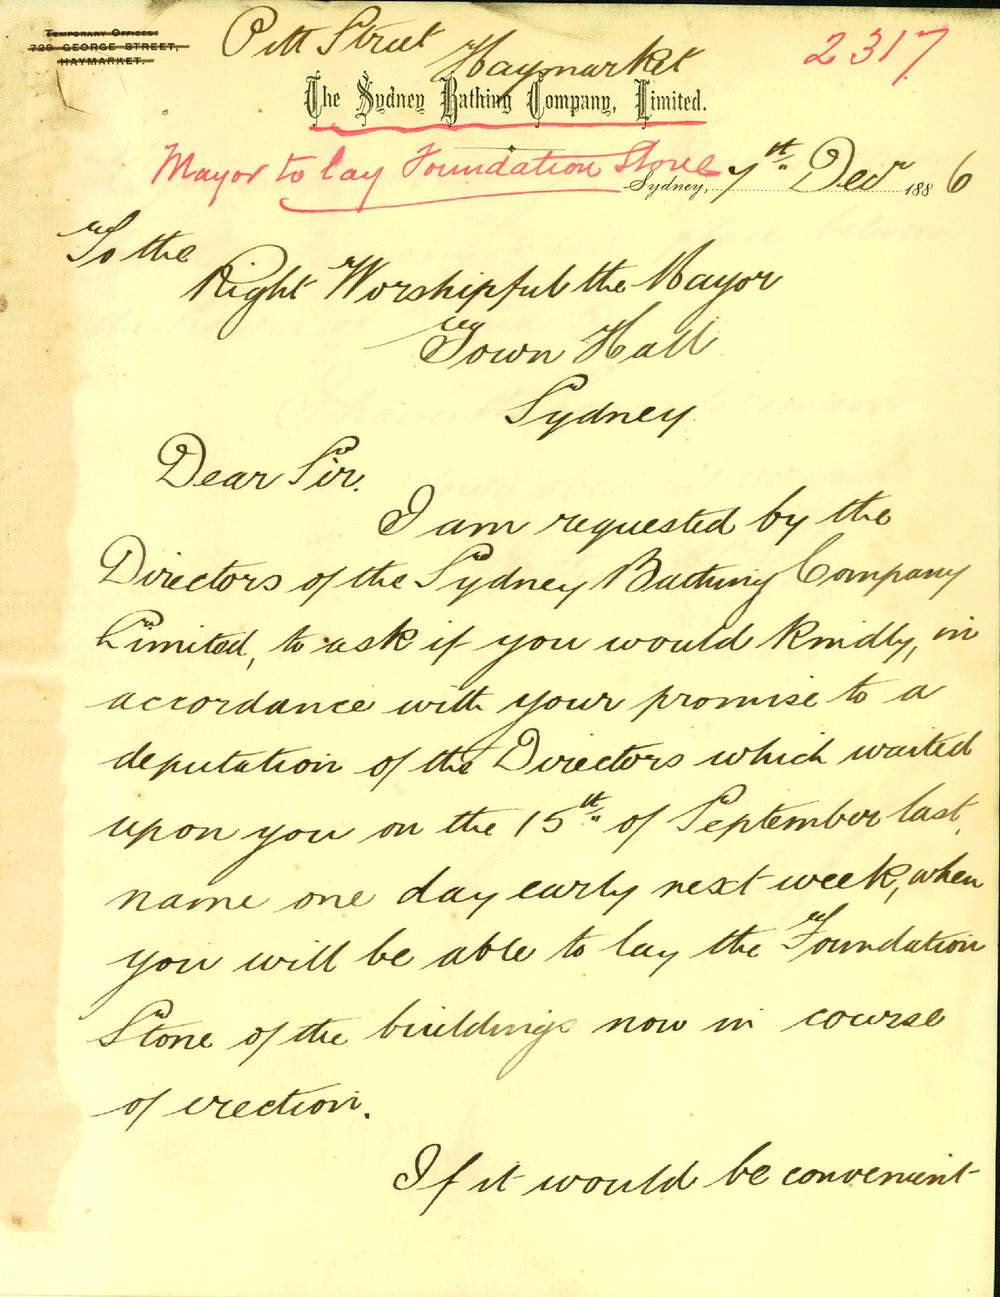 TEMPORARY OFFICES
729 GEORGE STREET,
HAYMARKET.
Pitt Street
Haymarket
2317
The Sydney Bathing Company, Limited.
Mayor to lay Foundation Stone
Sydney, 7th Decr 1886
To the
Right Worshipful the Mayor
Town Hall
Sydney
Dear Sir.
I am requested by the
Directors of the Sydney Bathing Company
Limited, to ask if you would kindly, in
accordance with your promise to a
deputation of the Directors which waited
upon you on the 15th of September last,
name one day early next week, when
you will be able to lay the Foundation
Stone of the buildings now in course
of erection.
If it would be convenient